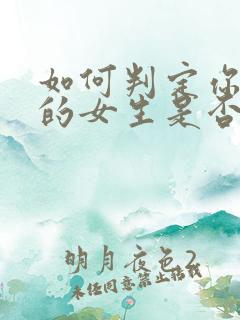 如何判定你
的女生是否
明月夜色2
未经同意禁止搭载